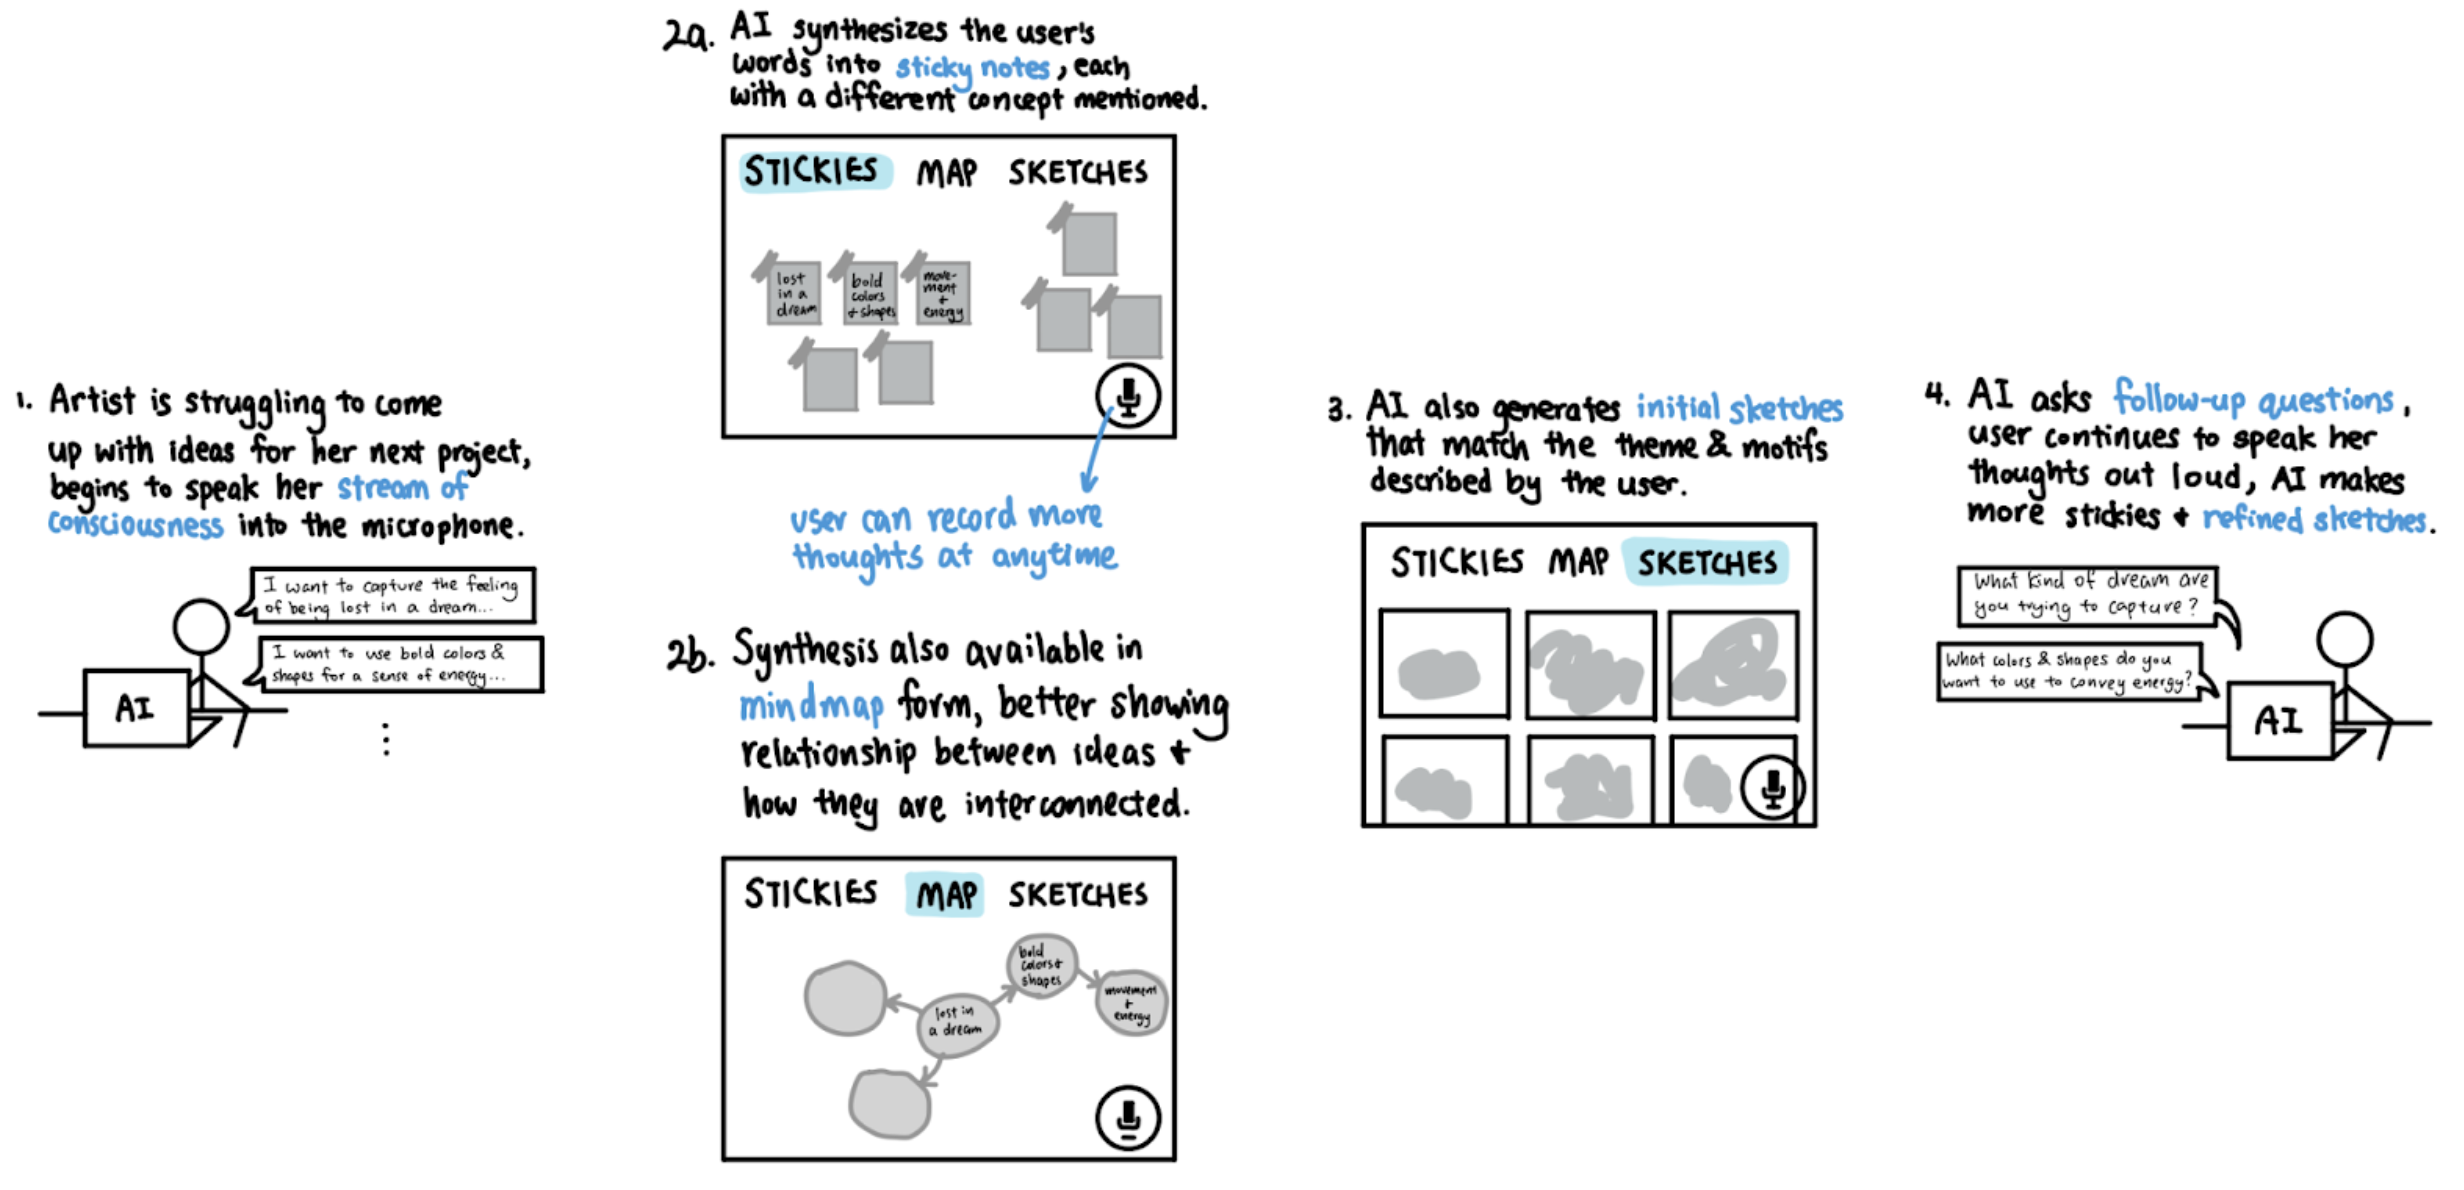 1. Artist is struggling to come
up with ideas for her next project,
begins to speak her stream of
consciousness into the microphone.
I want to capture the feeling
of being lost in a dream...
I want to use bold colors &
shapes for a sense of energy...
AI
2a. AI synthesizes the user's
words into sticky notes, each
with a different concept mentioned.
STICKIES MAP SKETCHES
lost
in a
dream
bold
colors
+ shapes
move-
ment
+
energy
user can record more
thoughts at anytime
2b. Synthesis also available in
mindmap form, better showing
relationship between ideas +
how they are interconnected.
STICKIES MAP SKETCHES
bold
colors +
shapes
movement
+
energy
lost in
a dream
3. AI also generates initial sketches
that match the theme & motifs
described by the user.
STICKIES MAP SKETCHES
4. AI asks follow-up questions,
user continues to speak her
thoughts out loud, AI makes
more stickies + refined sketches.
What kind of dream are
you trying to capture?
What colors & shapes do you
want to use to convey energy?
AI